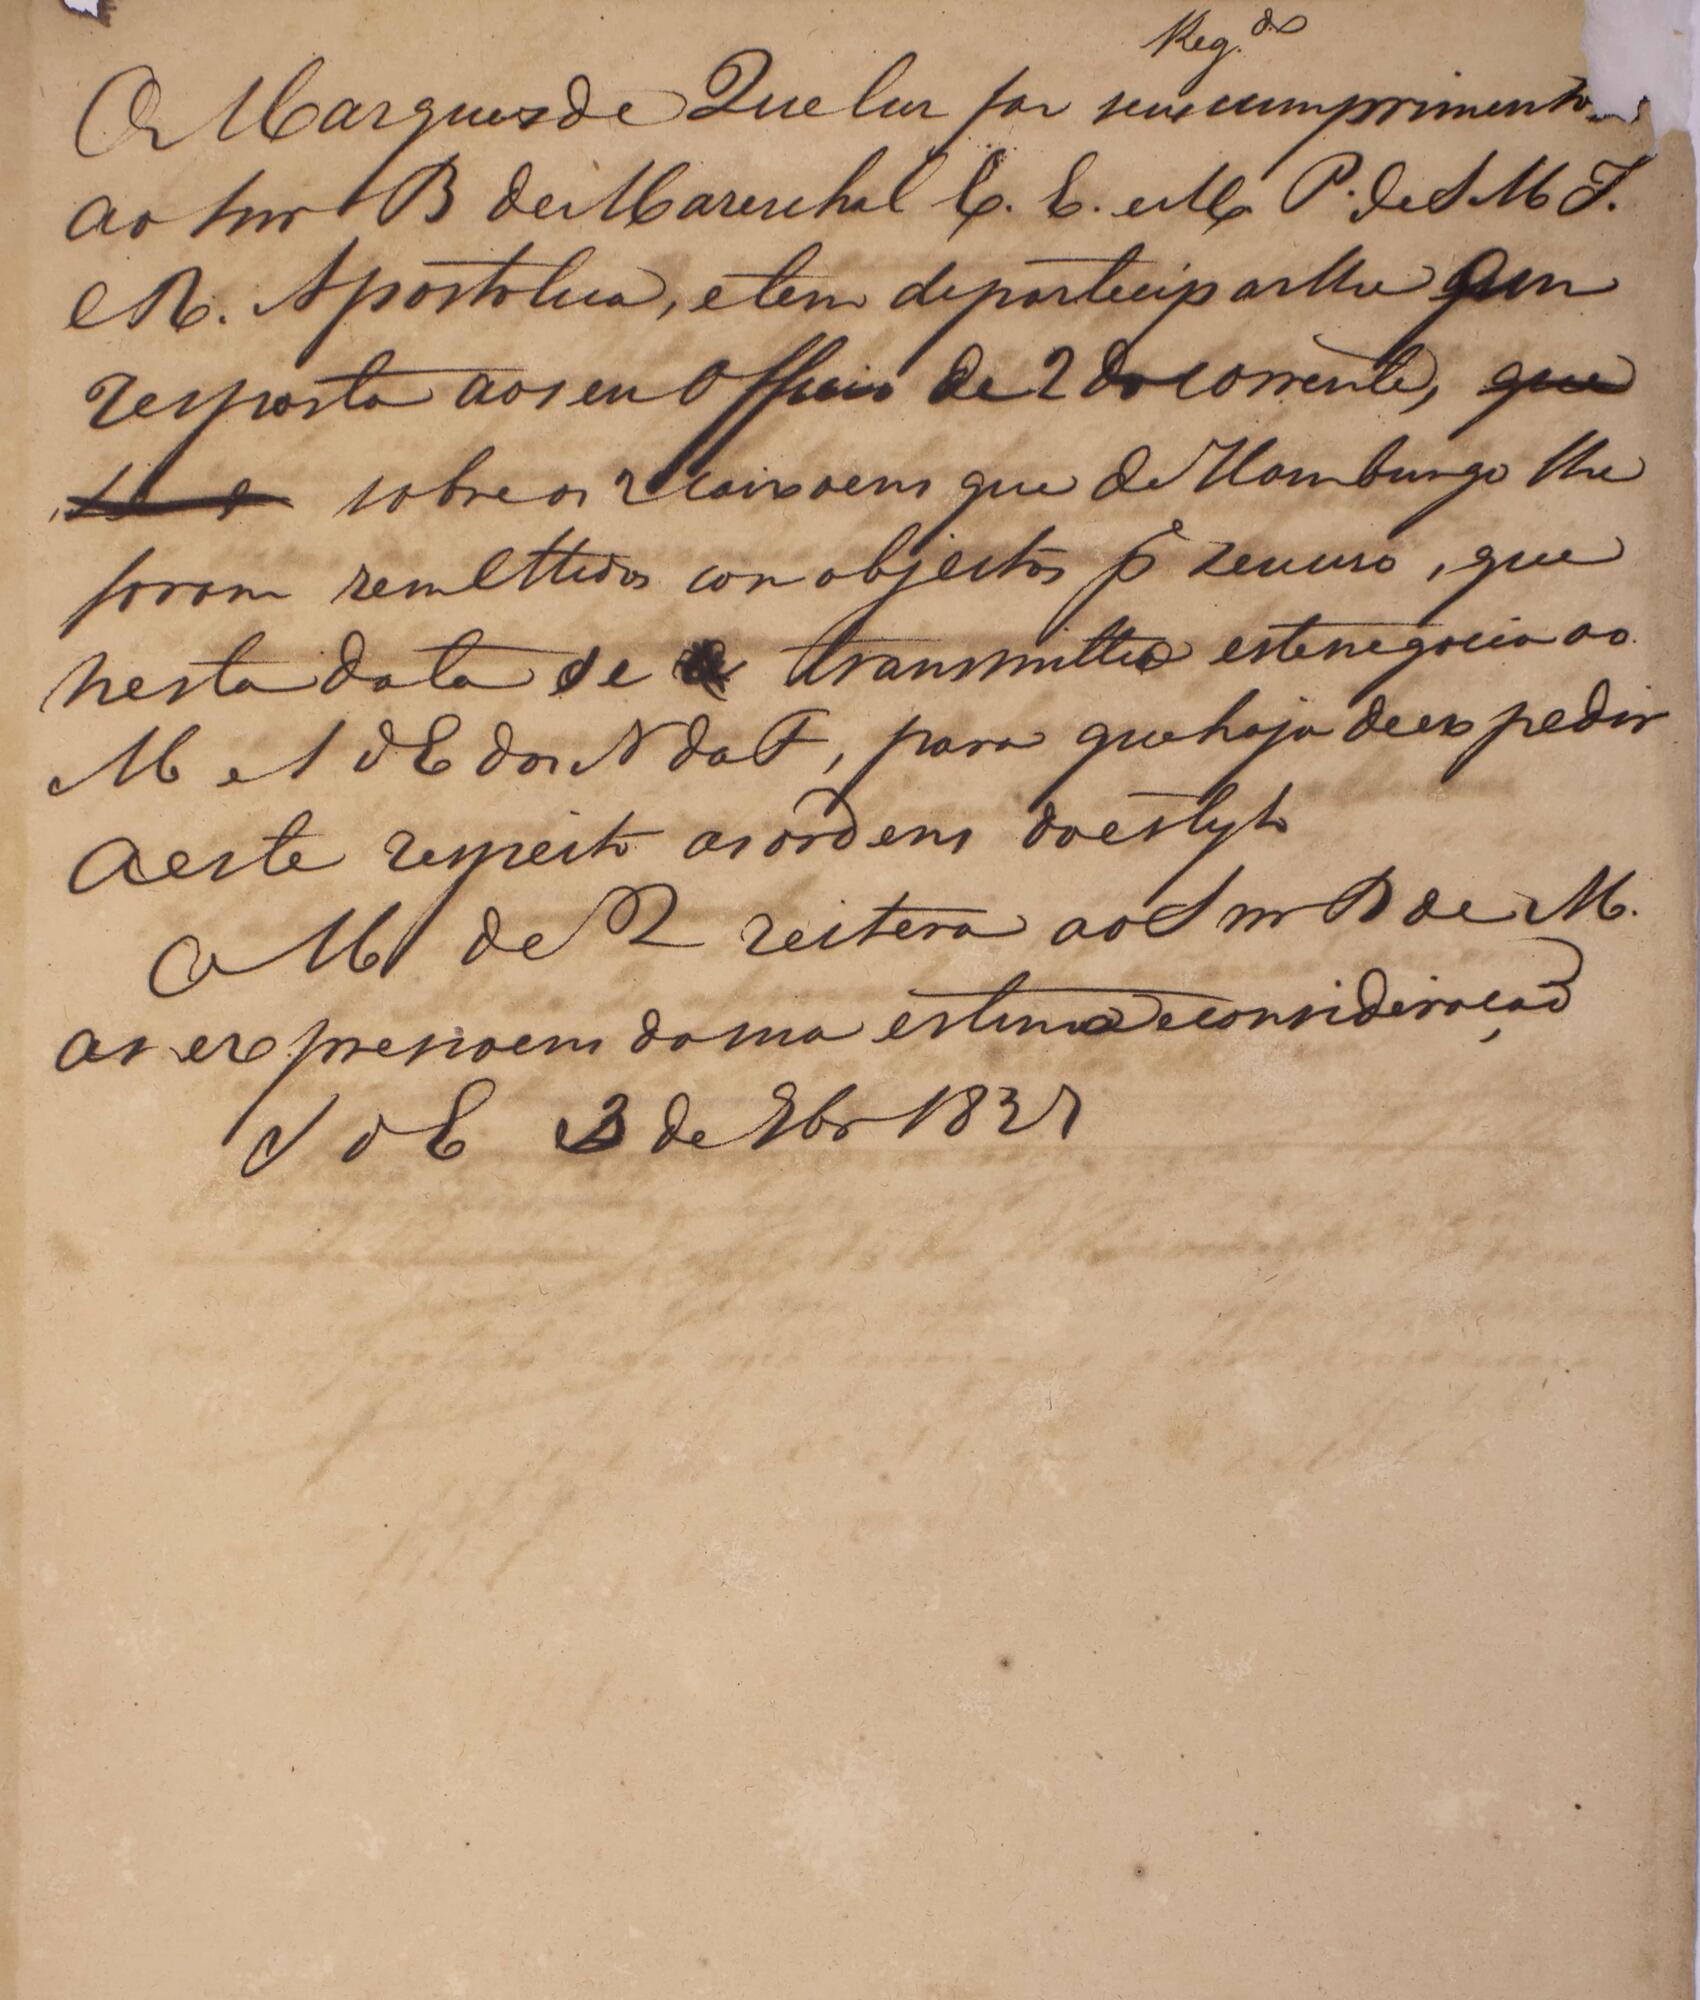 Reg.do
O Marquez de Queluz faz seus cumprimentos
ao Snr B de Mareschal E. E. e M. P. de S M I.
e R. Apostolica, e tem de participar lhe em
resposta ao seu Officio de 2 do corrente, que
sobre os 2 caixoens que de Hamburgo lhe
foram remettidos com objectos pª seu uso, que
nesta data se transmittio este negocio ao
M e S d'E dos N da F, para que haja de expedir
a este respeito as ordens do estylo
O M de Q reitera ao Snr B de M.
as expressoens da sua estima e consideração
S d'E 3 de 8br 1827